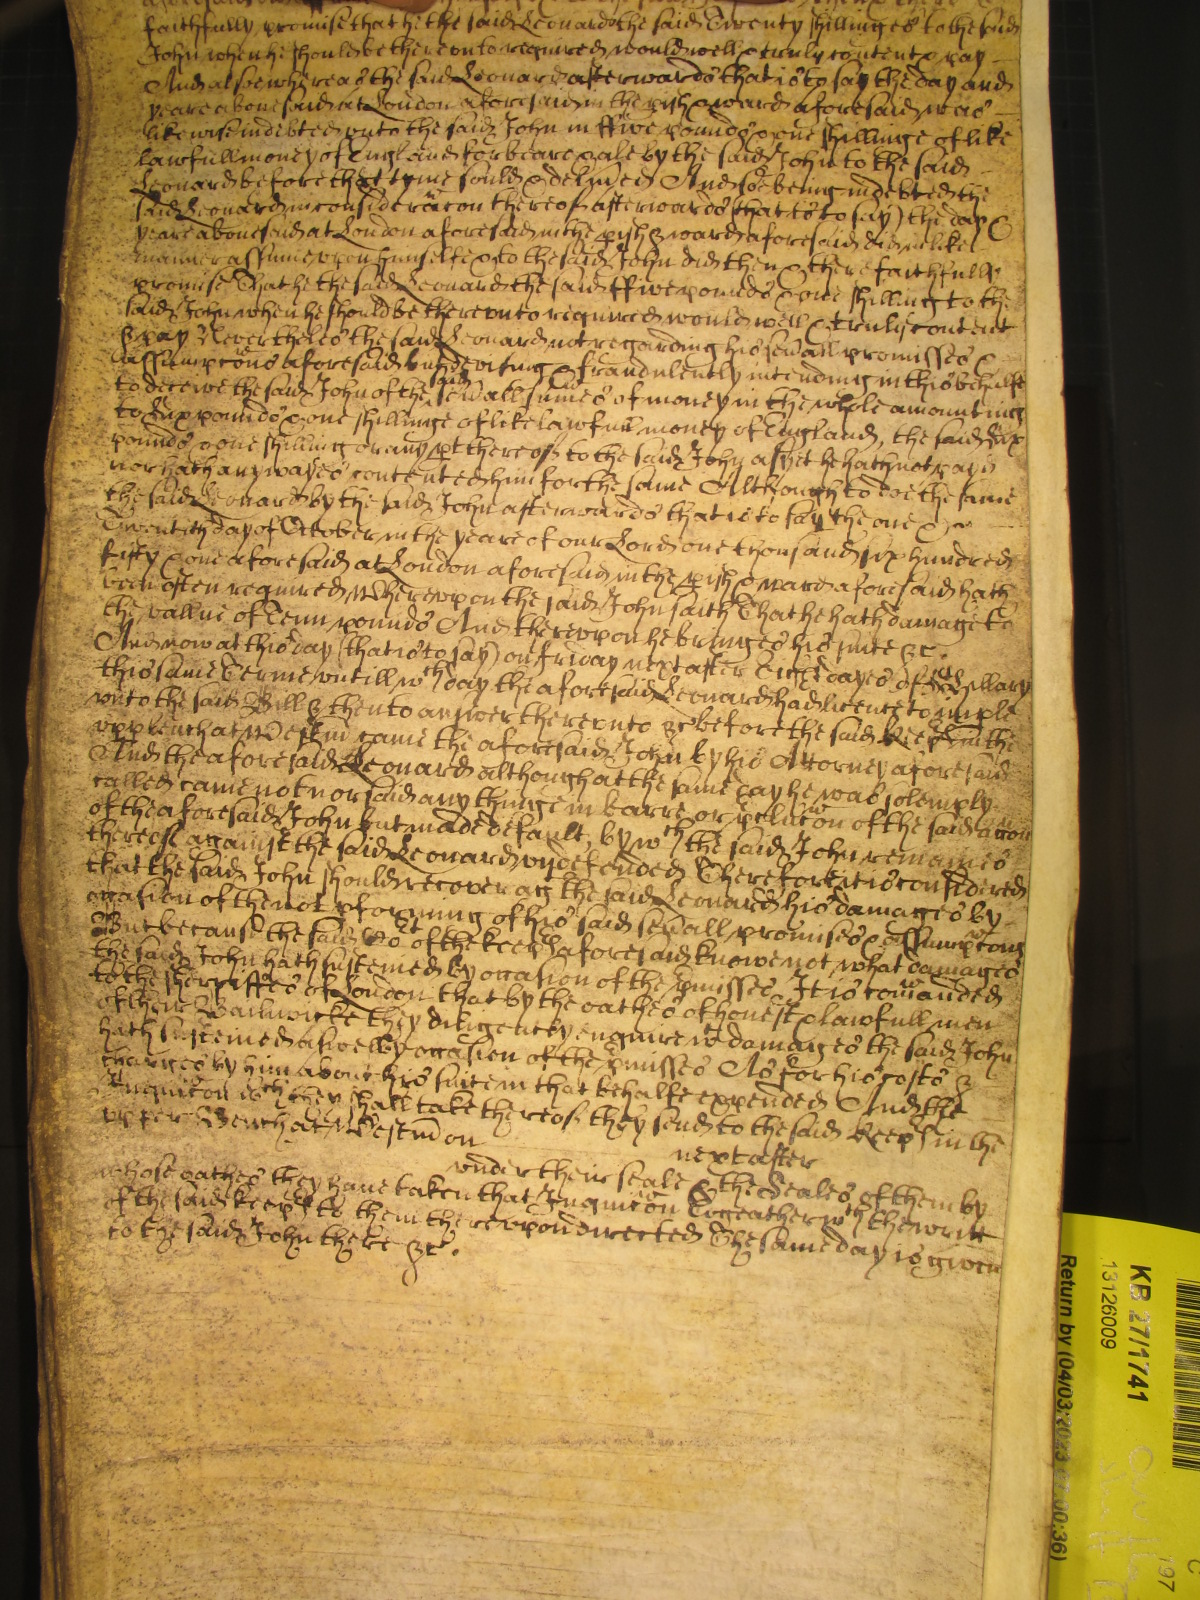 faithfully promise that he the said Leonard the said Twenty shillinges to the said
John when he should be thereunto required would well & truly content & pay
And alsoe whereas the said Leonard afterwards that is to say the day and
yeare abovesaid at London aforesaid in the pish & ward aforesaid was
likewise indebted unto the said John in ffive pounds & one shillinge of like
lawfull money of England for beare & ale by the said John to the said
Leonard before that tyme sould & delived And soe being indebted the
said Leonard in consideracon thereof afterwards (that is to say) the day &
yeare abovesaid at London aforesaid in the pish & ward aforesaid did in like
manner assume upon himselfe & to the said John did then & there faithfully
promise That he the said Leonard the said ffive pounds & one shilling to the
said John when he should be thereunto required would well & truly content
& pay Neverthelesse the said Leonard not regarding his sevall promisses &
assumpcons aforesaid but deviseing & fraudulently intending in this behalfe
to deceive the said John of the said sevall sumes of money in the whole amounting
to Six pounds & one shillinge of like lawfull money of England, the said Six
pounds & one shilling or any pt thereof to the said John as yet he hath not payd
nor hath any wayes contented him for the same Although to doe the same
the said Leonard by the said John afterwards that is to say the one &
Twentith day of October in the yeare of our Lord one thousand six hundred
fifty & one aforesaid at London aforesaid in the pish & ward aforesaid hath
been often required Whereupon the said John saith That he hath damage to
the vallue of Tenn pounds And thereupon he bringes his suite &c.
And now at this day (that is to say) on friday next after Eight dayes of St Hillary
this same Terme untill wch day the aforesaid Leonard had licence to imple
unto the said Bill & then to answer thereunto &c before the said Keeps in the
upper bench at Westm came the aforesaid John by his Attorney aforesaid
And the aforesaid Leonard although at the same day he was solemply
called came not nor said any thinge in barre or pclucon of the said accon
of the aforesaid John but made default, by wch the said John remaines
thereof against the said Leonard undefended Therefore it is considered
that the said John should recover agt the said Leonard his damages by
occasion of the not pforming of his said sevall promises & assumpcons
But because the said Co't of the Keeps aforesaid knowe not what damages
the said John hath susteined by occasion of the pmisses It is comanded
to the Sherriffes of London that by the oathes of honest & lawfull men
of their Bailiwicke they diligently enquire wt damages the said John
hath susteined aswell by occasion of the pmisses As for his costs &
charges by him about his suite in that behalfe expended And the
Inquicon wch they shall take thereof they send to the said Keeps in the
upper Bench at Westm on
next after
under their seale & the Seales of them by
whose oathes they have taken that Inquicon togeather wth the writt
of the said keeps to them thereupon directed The same day is given
to the said John there &c.
KB 27/1741
13126009
Return by (04/03/2023 07:00:36)
197
C